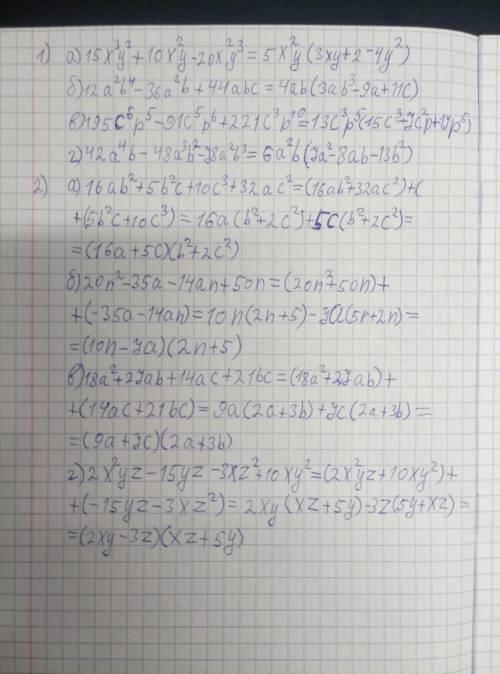 1) а) 15x³y² + 10x²y - 20x²y³ = 5x²y(3xy + 2 - 4y²)
б) 12a²b⁴ - 36a²b + 44abc = 4ab(3ab³ - 9a + 11c)
в) 195c⁶p⁵ - 91c⁵p⁶ + 221c³p¹⁰ = 13c³p⁵(15c³ - 7c²p + 17p⁵)
г) 42a⁴b - 48a³b² - 78a²b³ = 6a²b(7a² - 8ab - 13b²)
2) а) 16ab² + 5b²c + 10c³ + 32ac² = (16ab² + 32ac²) + (
+ (5b²c + 10c³) = 16a(b² + 2c²) + 5c(b² + 2c²) =
= (16a + 5c)(b² + 2c²)
б) 20n² - 35a - 14an + 50n = (20n² + 50n) +
+ (-35a - 14an) = 10n(2n + 5) - 7a(5+2n) =
= (10n - 7a)(2n + 5)
в) 18a² + 27ab + 14ac + 21bc = (18a² + 27ab) +
+ (14ac + 21bc) = 9a(2a + 3b) + 7c(2a + 3b) =
= (9a + 7c)(2a + 3b)
г) 2x²yz - 15yz - 3xz² + 10xy² = (2x²yz + 10xy²) +
+ (-15yz - 3xz²) = 2xy(xz + 5y) - 3z(5y + xz) =
= (2xy - 3z)(xz + 5y)